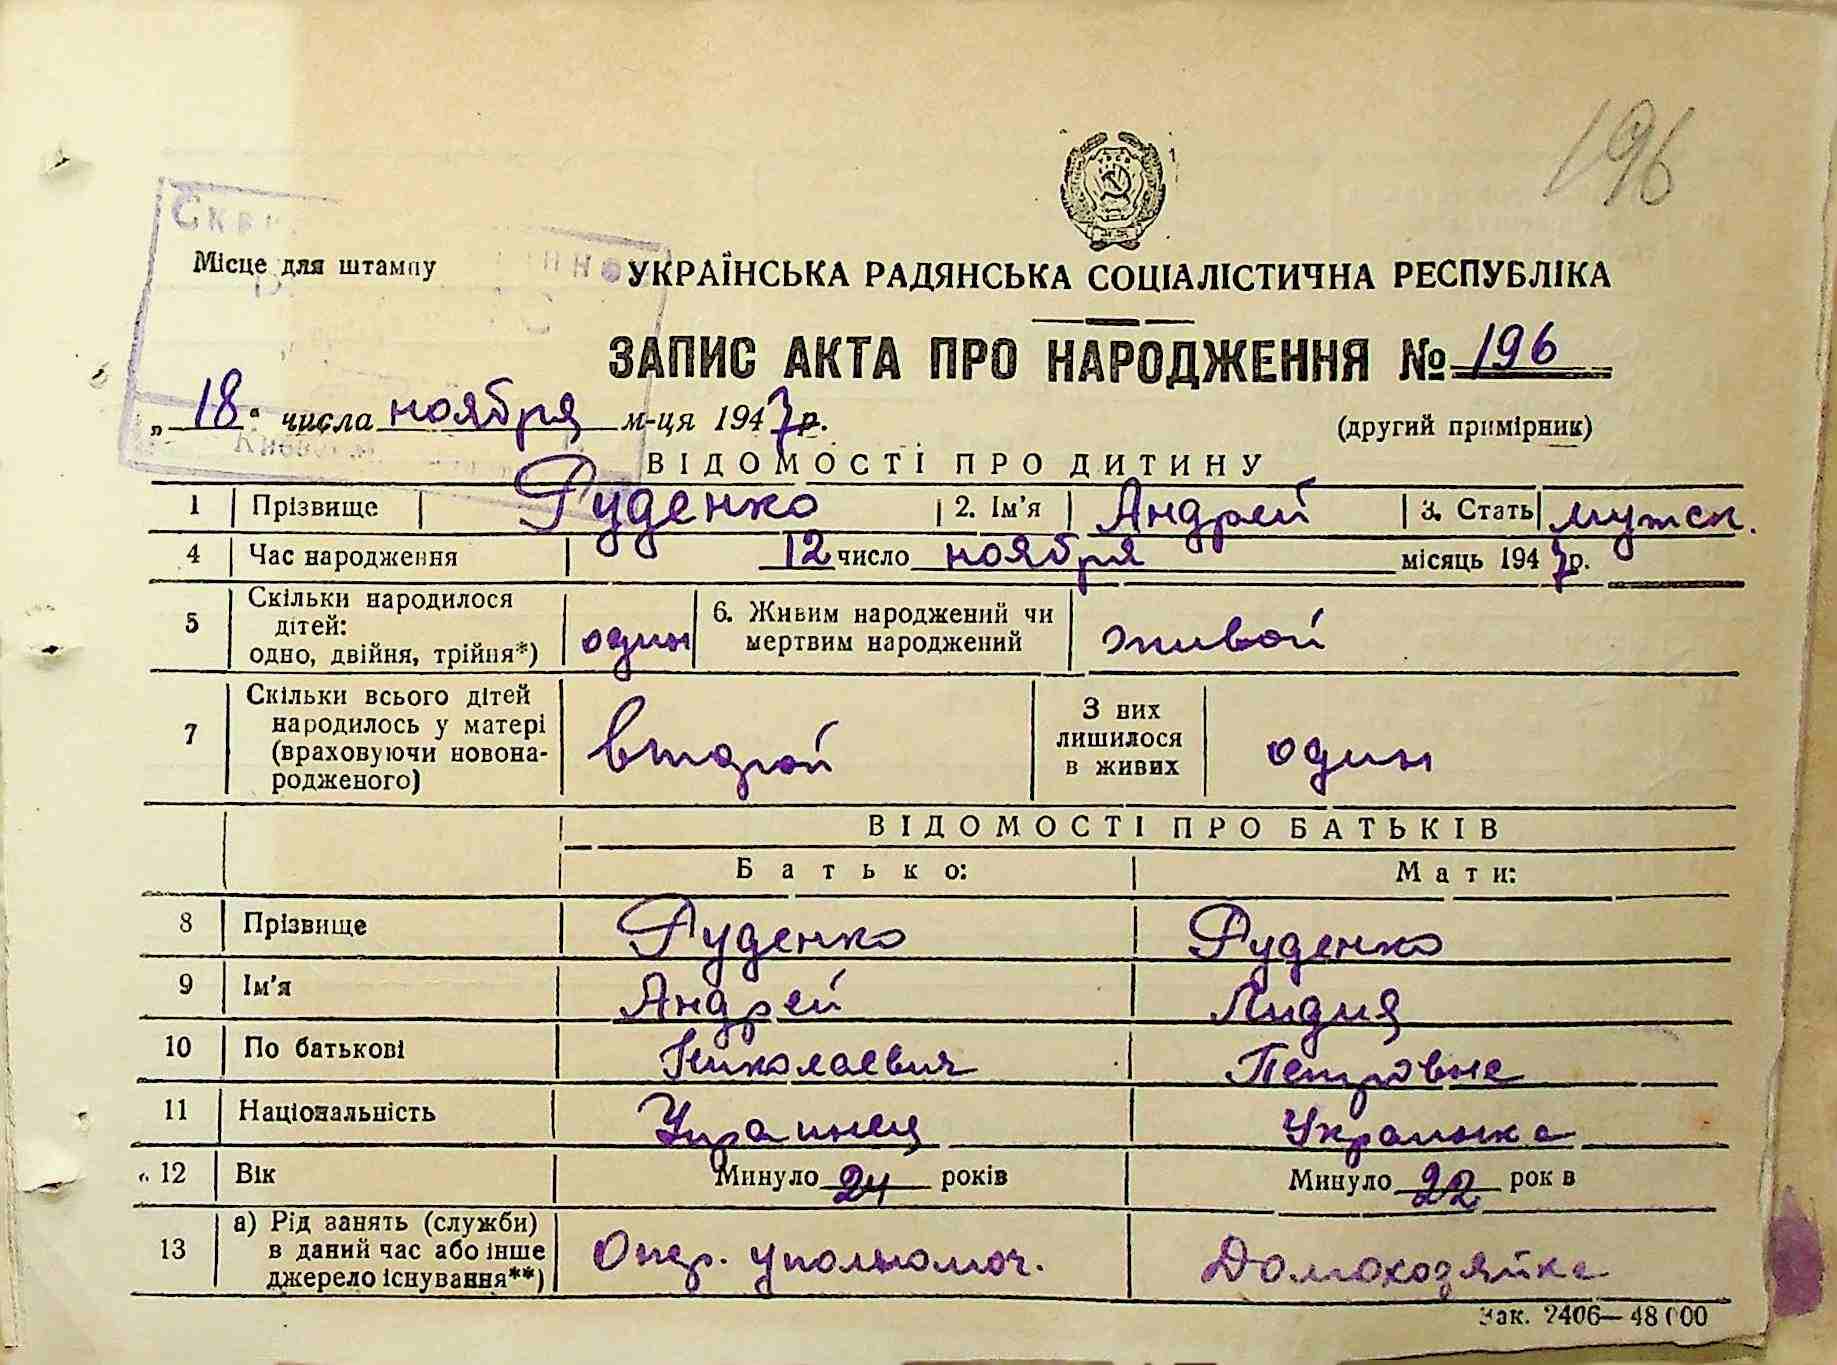 196
Місце для штампу
УКРАЇНСЬКА РАДЯНСЬКА СОЦІАЛІСТИЧНА РЕСПУБЛІКА
ЗАПИС АКТА ПРО НАРОДЖЕННЯ № 196
„ 18 " числа ноября м-ця 1947 р.
(другий примірник)
ВІДОМОСТІ ПРО ДИТИНУ
1 Прізвище Руденко 2. Ім'я Андрей 3. Стать мужск.
4 Час народження 12 число ноября місяць 1947 р.
5 Скільки народилося дітей: одно, двійня, трійня*) один 6. Живим народжений чи мертвим народжений живой
7 Скільки всього дітей народилось у матері (враховуючи новонародженого) второй З них лишилося в живих один
ВІДОМОСТІ ПРО БАТЬКІВ
Батько: Мати:
8 Прізвище Руденко Руденко
9 Ім'я Андрей Лидия
10 По батькові Николаевич Петровна
11 Національність Украинец Украинка
12 Вік Минуло 24 років Минуло 22 років
13 а) Рід занять (служби) в даний час або інше джерело існування**) Опер. уполномоч. Домохозяйка
Зак. 2406—48000